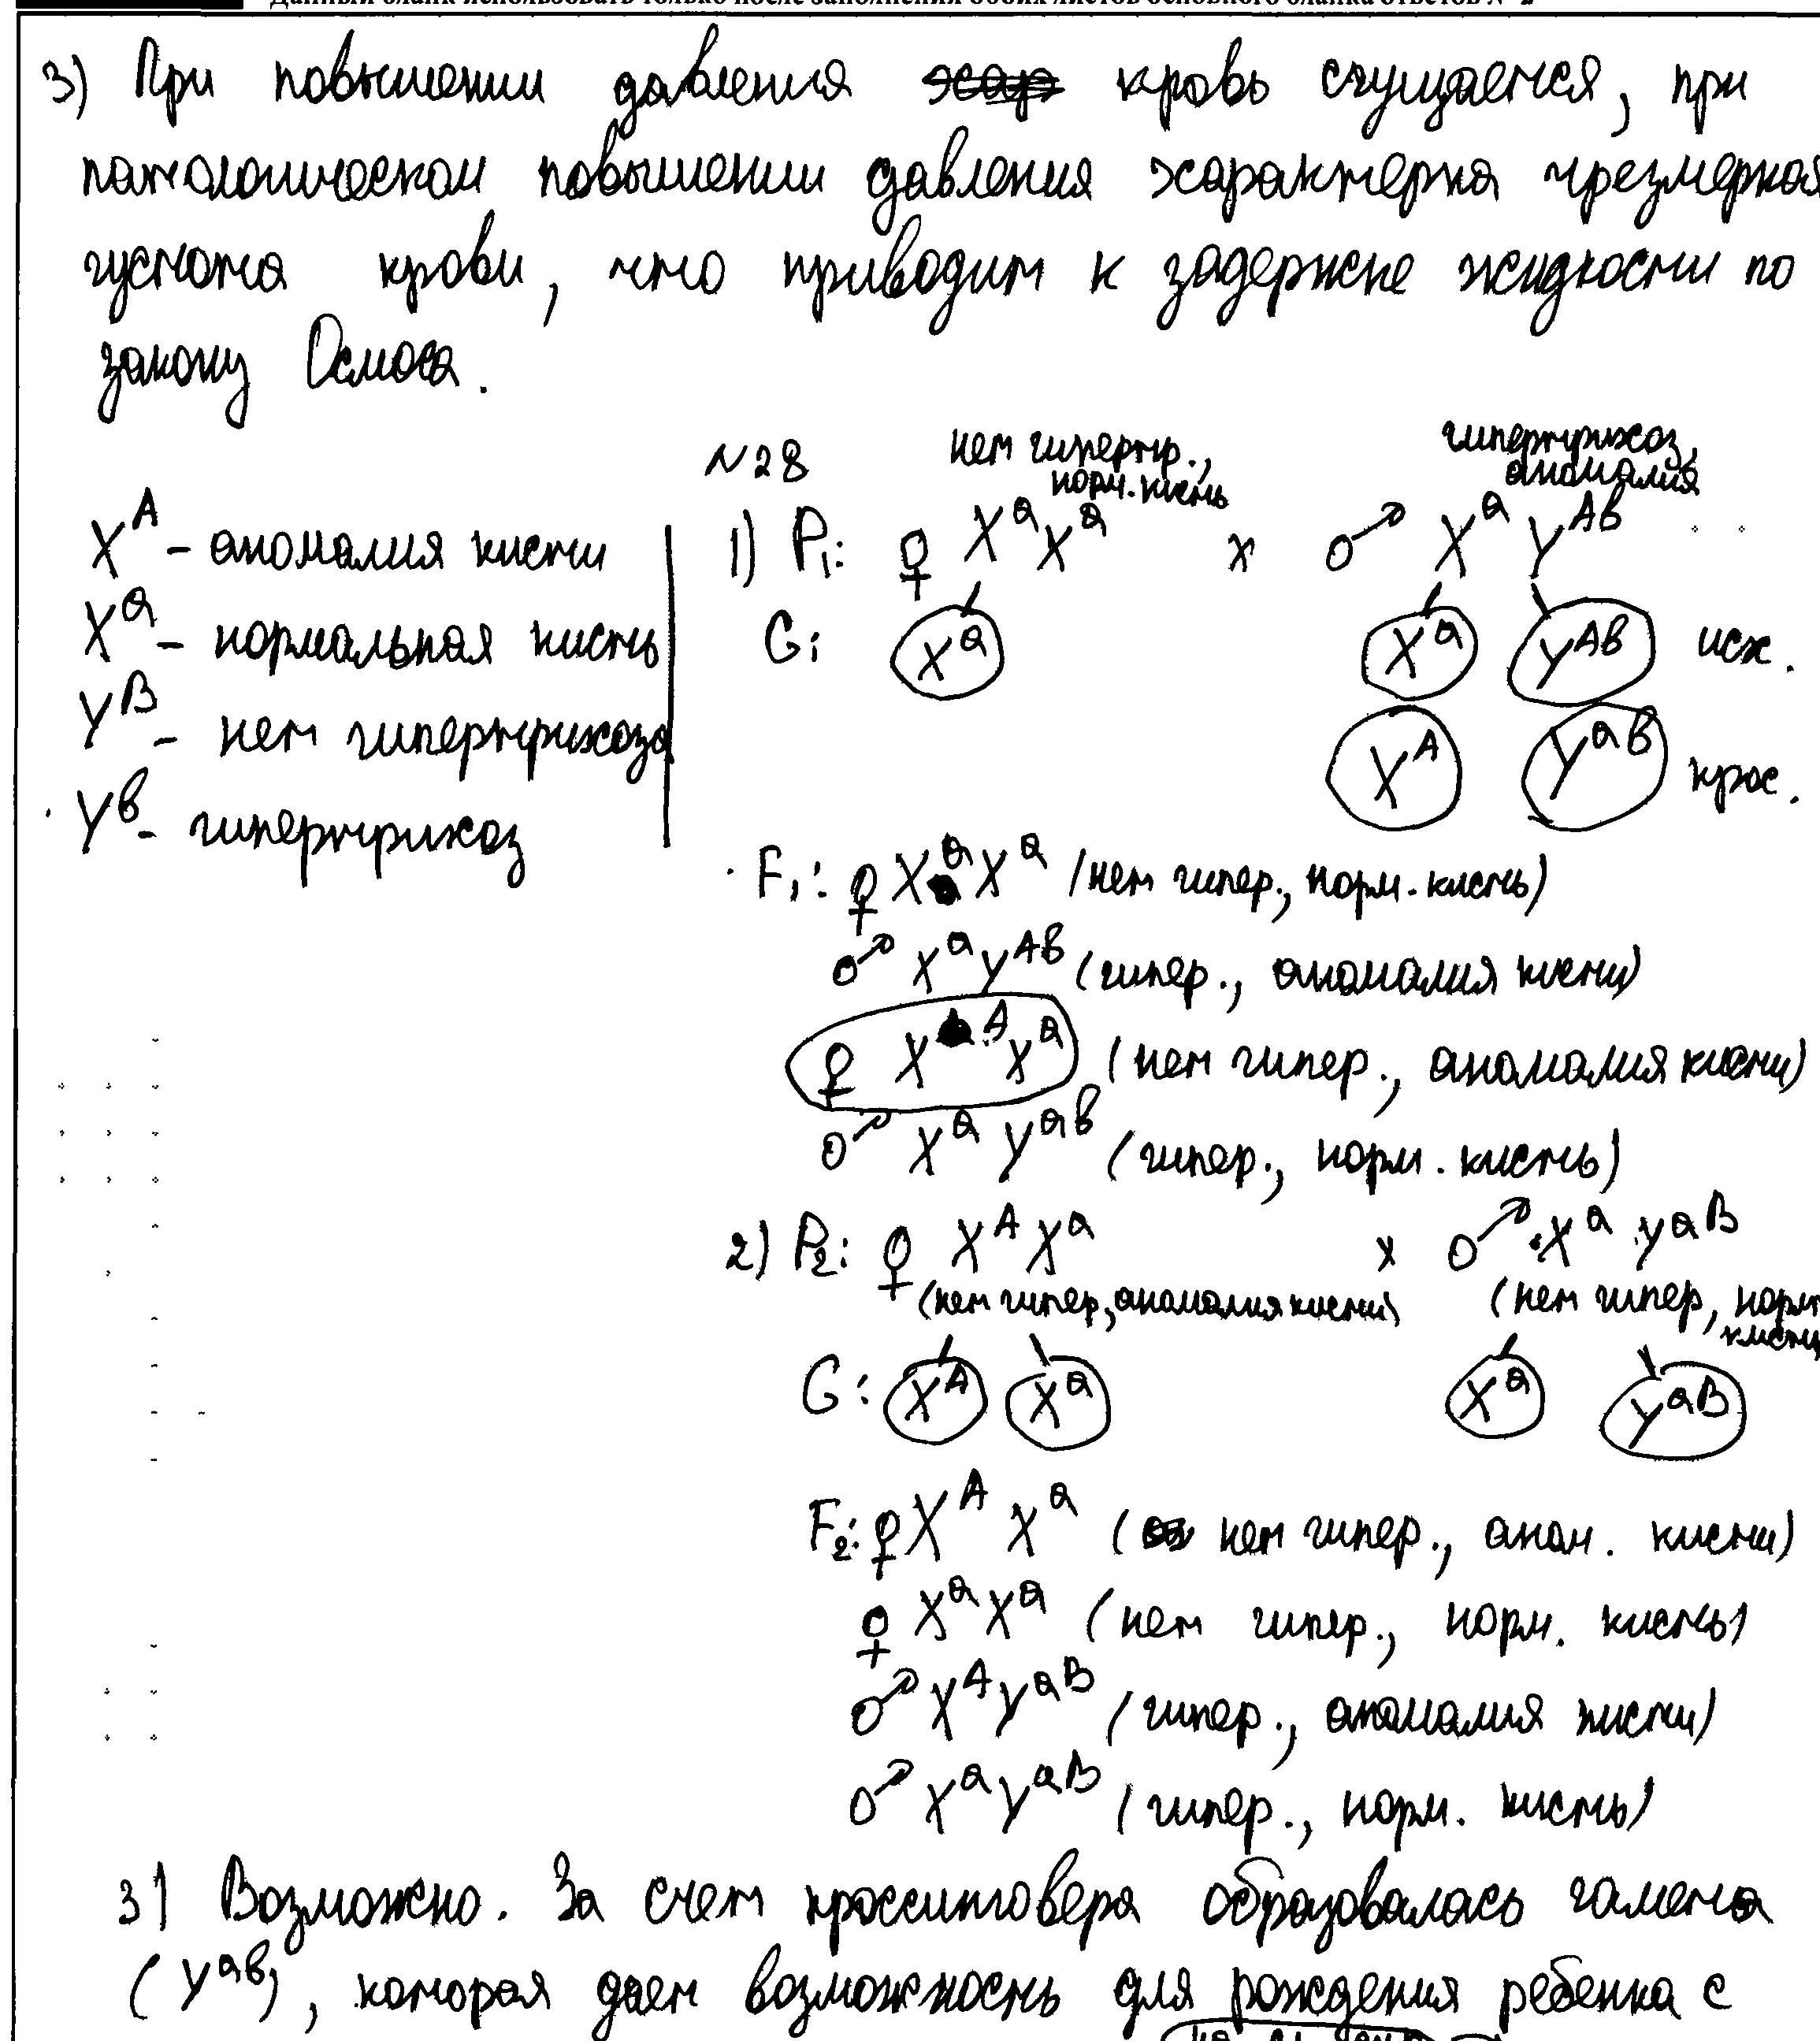 Данный бланк использовать только после заполнения обоих листов основного бланка ответов № 2
3) При повышении давления кровь сгущается, при
патологическом повышении давления характерна чрезмерная
густота крови, что приводит к задержке жидкости по
закону Осмоса.
№28
нет гипертр., норм. кисть
гипертрихоз, аномалия
X^A - аномалия кисти
X^a - нормальная кисть
Y^B - нет гипертрихоза
Y^b - гипертрихоз
1) P₁: ♀ X^a X^a x ♂ X^a Y^Ab
G: X^a X^a Y^Ab исх.
X^A Y^ab крос.
F₁: ♀ X^a X^a (нет гипер., норм. кисть)
♂ X^a Y^Ab (гипер., аномалия кисти)
♀ X^A X^a (нет гипер., аномалия кисти)
♂ X^a Y^ab (гипер., норм. кисть)
2) P₂: ♀ X^A X^a x ♂ X^a Y^aB
(нет гипер, аномалия кисти) (нет гипер, норм кисть
G: X^A X^a X^a Y^aB
F₂: ♀ X^A X^a (нет гипер., аном. кисти)
♀ X^a X^a (нет гипер., норм. кисть)
♂ X^A Y^aB (гипер., аномалия кисти)
♂ X^a Y^aB (гипер., норм. кисть)
3) Возможно. За счет кроссинговера образовалась гамета
(Y^ab), которая дает возможность для рождения ребенка с